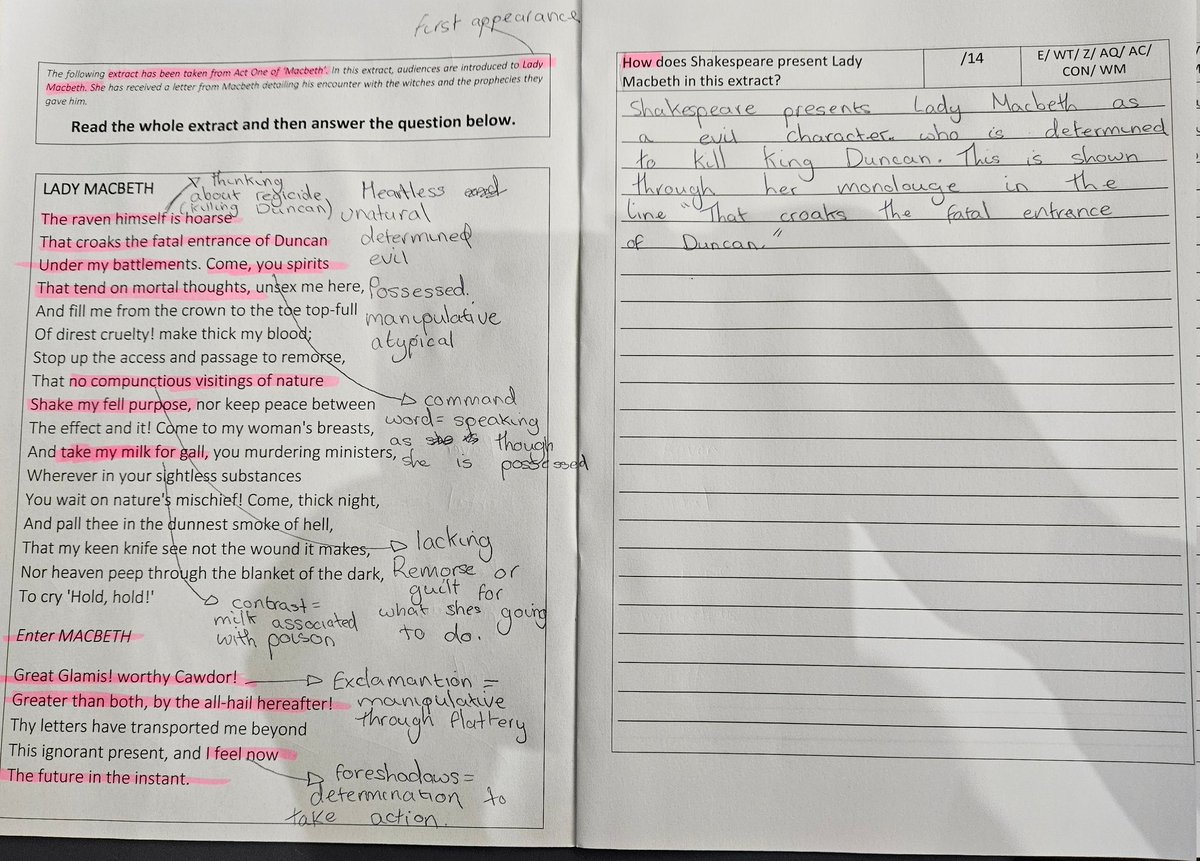 first appearance
The following extract has been taken from Act One of 'Macbeth'. In this extract, audiences are introduced to Lady
Macbeth. She has received a letter from Macbeth detailing his encounter with the witches and the prophecies they
gave him.
Read the whole extract and then answer the question below.
LADY MACBETH
The raven himself is hoarse
That croaks the fatal entrance of Duncan
Under my battlements. Come, you spirits
That tend on mortal thoughts, unsex me here,
And fill me from the crown to the toe top-full
Of direst cruelty! make thick my blood;
Stop up the access and passage to remorse,
That no compunctious visitings of nature
Shake my fell purpose, nor keep peace between
The effect and it! Come to my woman's breasts,
And take my milk for gall, you murdering ministers,
Wherever in your sightless substances
You wait on nature's mischief! Come, thick night,
And pall thee in the dunnest smoke of hell,
That my keen knife see not the wound it makes,
Nor heaven peep through the blanket of the dark,
To cry 'Hold, hold!'
Enter MACBETH
Great Glamis! worthy Cawdor!
Greater than both, by the all-hail hereafter!
Thy letters have transported me beyond
This ignorant present, and I feel now
The future in the instant.
thinking
about regicide
(killing Duncan)
Heartless
unatural
determined
evil
Possessed.
manipulative
atypical
command
word= speaking
as though
she is possessed
lacking
Remorse or
guilt for
what shes going
to do.
contrast=
milk associated
with poison
Exclamantion =
manipulative
through flattery
foreshadows=
determination to
take action.
How does Shakespeare present Lady
Macbeth in this extract?
/14
E/ WT/ Z/ AQ/ AC/
CON/ WM
Shakespeare presents Lady Macbeth as
a evil character who is determined
to kill King Duncan. This is shown
through her monolouge in the
line "That croaks the fatal entrance
of Duncan."